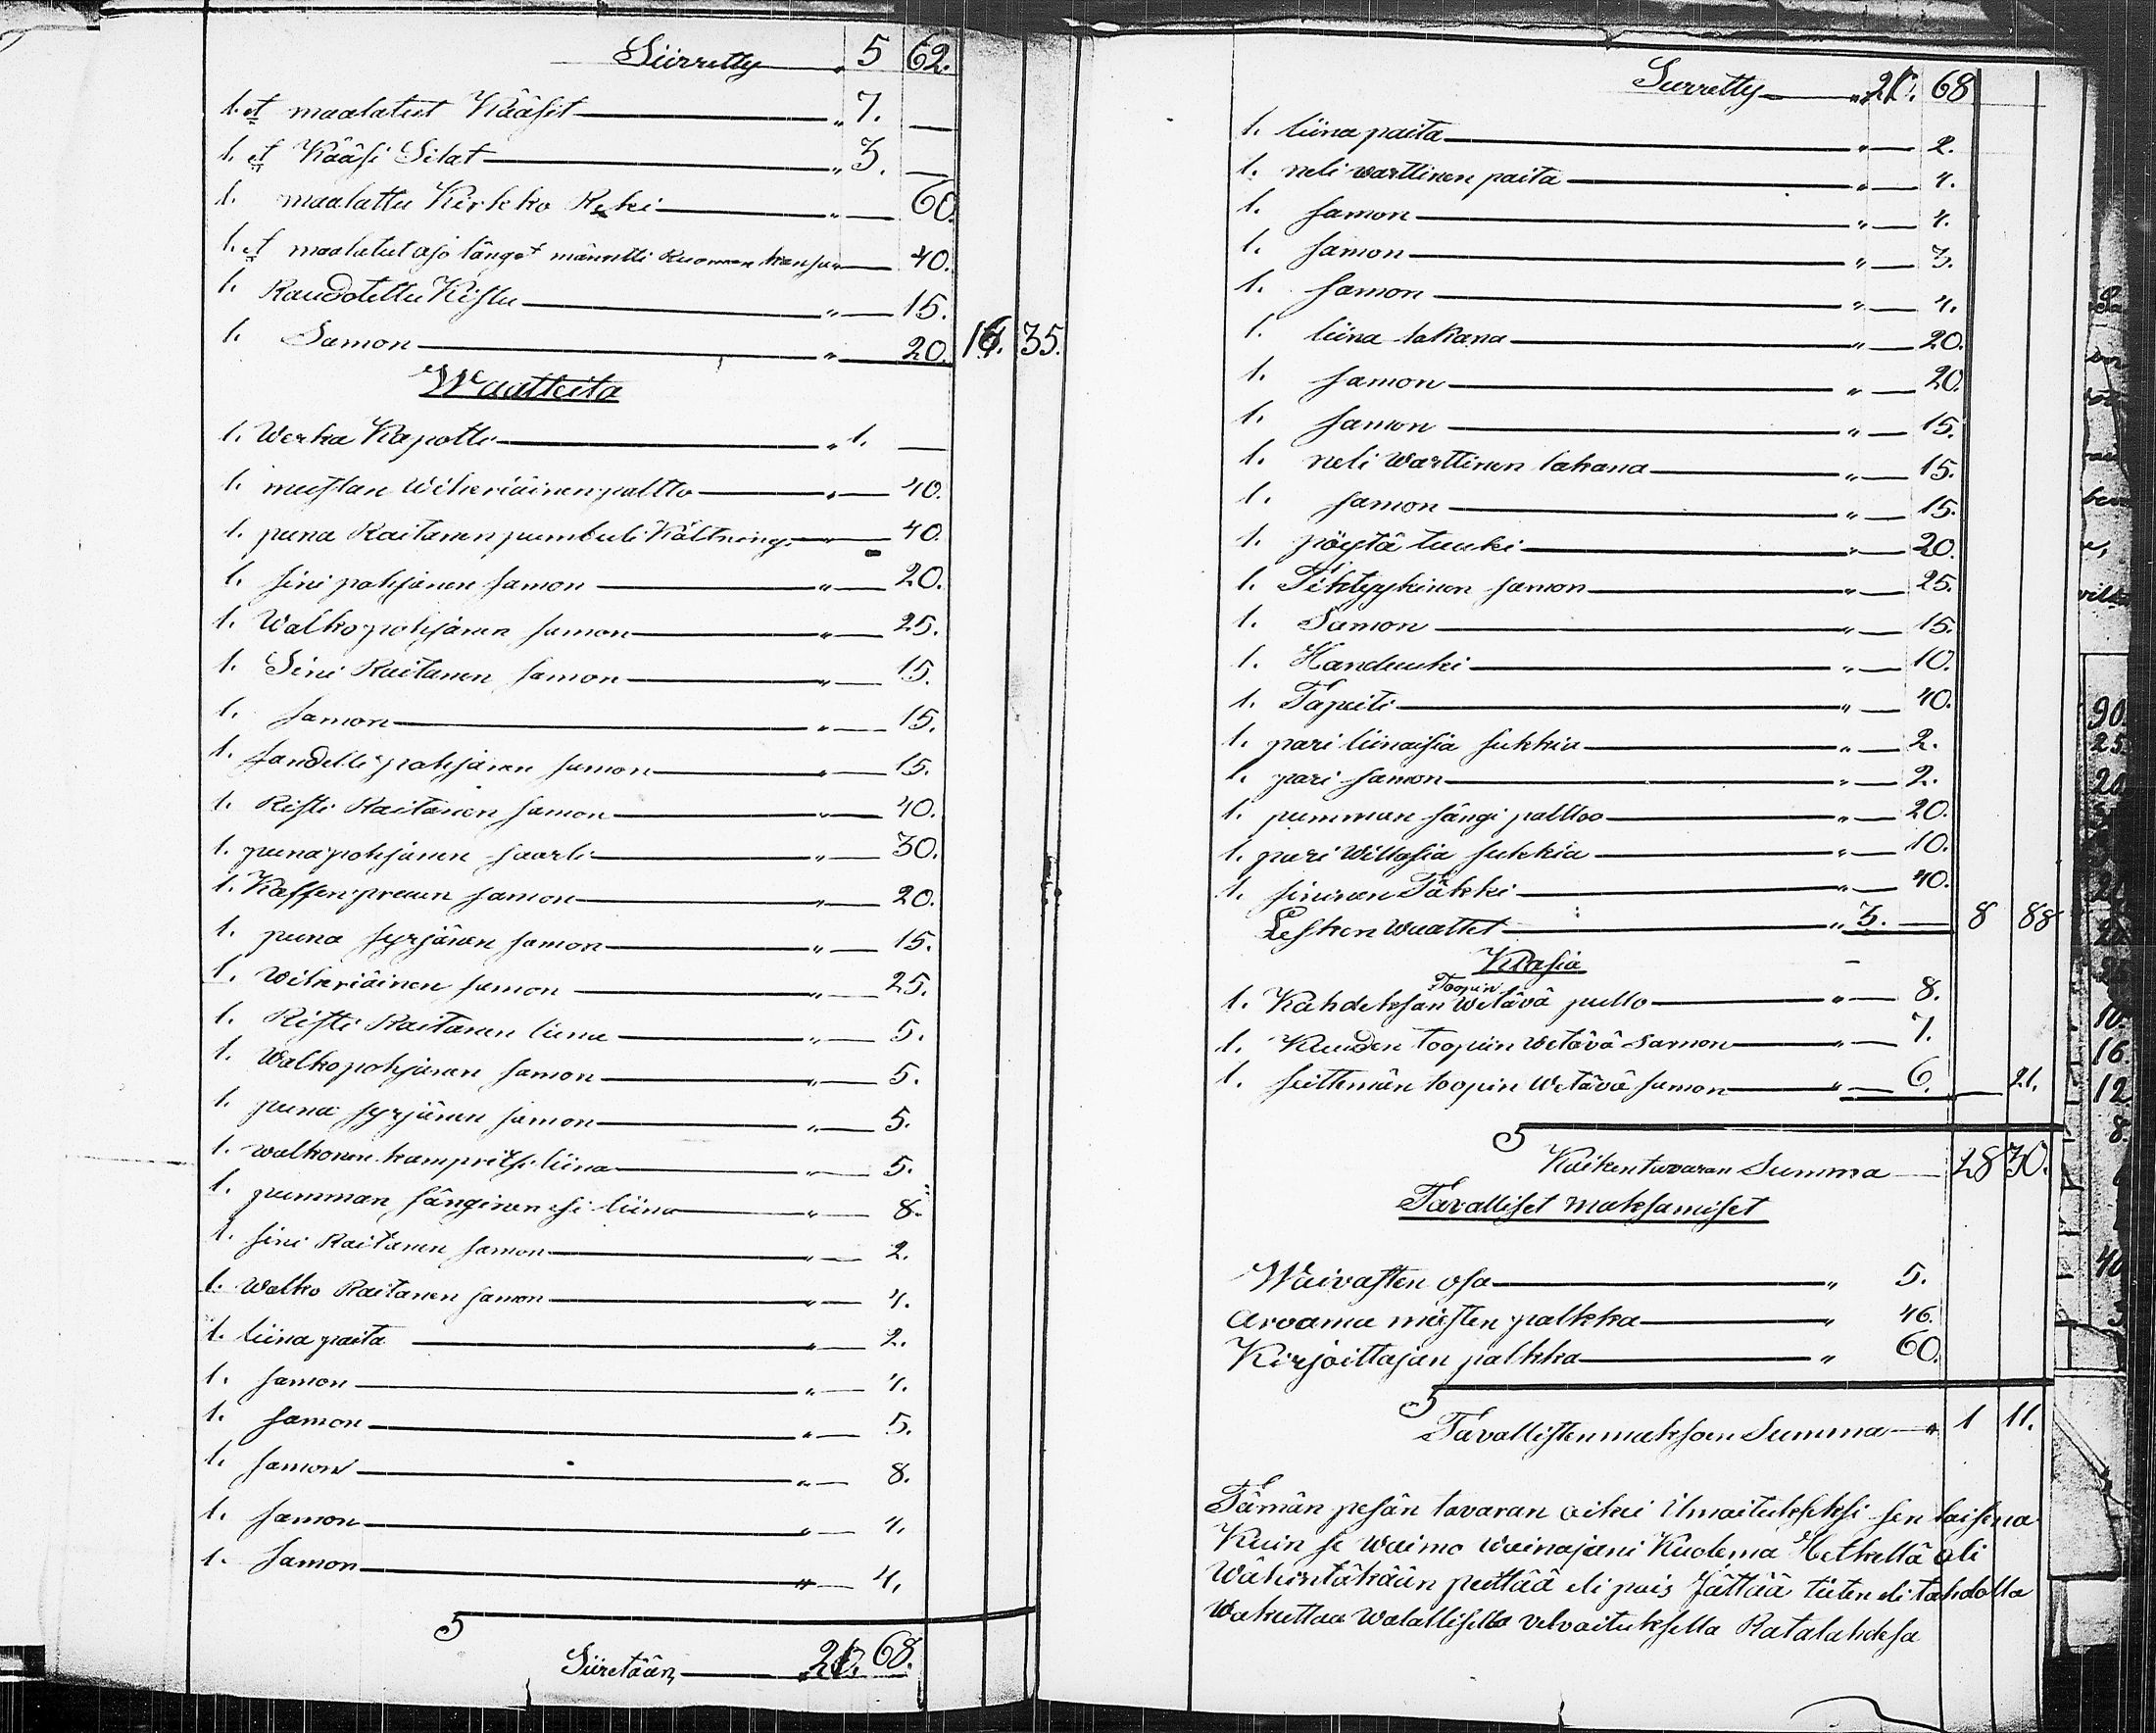 Siirretty „ 5 62.
1. et maalatut Kääsit „ 7. —
1. et Kääsi Silat „ 3. —
1. maalattu Kirkko Reki „ — 60.
1. et maalatut ajo länget männetti Kuomen kansa — 40.
1. Raudotettu Kistu „ — 15.
1. Samon „ — 20. 16. 35.
Waatteita
1. Werka Kapotti „ 1. —
1. mustan Wiheriäinen paltto „ — 40.
1. puna Raitanen pumbuli Kältning „ — 40.
1. sini pohjanen samon „ — 20.
1. Walko pohjänen samon „ — 25.
1. Sini Raitanen samon „ — 15.
1. samon „ — 15.
1. sandelli pohjänen samon „ — 15.
1. Risti Raitanen samon „ — 40.
1. puna pohjänen saarli „ — 30.
1. Kaffenpruun samon „ — 20.
1. puna syrjänen samon „ — 15.
1. Wiheriäinen samon „ — 25.
1. Risti Raitanen liina „ — 5.
1. Walko pohjänen samon „ — 5.
1. puna syrjänen samon „ — 5.
1. walkonen kampritsi liina „ — 5.
1. pumman sänginen esi liina „ — 8.
1. sini Raitanen samon „ — 2.
1. Walko Raitanen samon „ — 4.
1. liina paita „ — 2.
1. samon „ — 4.
1. samon „ — 5.
1. samon „ — 8.
1. samon „ — 4.
1. samon „ — 4.
S
Siiretään, 68.
Siirretty „ 68
1. liina paita „ — 2.
1. neli warttinen paita „ — 4.
1. samon „ — 4.
1. samon „ — 3.
1. samon „ — 4.
1. liina lakana „ — 20.
1. samon „ — 20.
1. samon „ — 15.
1. neli Warttinen lakana „ — 15.
1. samon „ — 15.
1. pöytä tuuki „ — 20.
1. Tiktyykinen samon „ — 25.
1. Samon „ — 15.
1. Handuuki „ — 10.
1. Tapeiti „ — 40.
1. pari liinaisia sukkia „ — 2.
1. pari samon „ — 2.
1. pumman sängi palttoo „ — 20.
1. pari Willasia sukkia „ — 10.
1. sininen Täkki „ — 40.
Lesken waattet „ 3. — 8 88
Klasia
Toopin
1. Kahdeksan Wetävä pullo „ — 8.
1. Kuuden toopiin wetävä Samon „ — 7.
1. seittemän toopin Wetävä samon „ — 6. — 21.
S
Kaiken tavaran Summa — 28 30.
Tavalliset maksamiset
Waivasten osa „ 5.
Arvama miesten palkka „ 46.
Kirjoittajan palkka „ 60.
S
Tavallisten maksoin Summa „ 1 11.
Tämän pesän tavaran oikei Ilmaitukseksi sen laisena
Kuin se waimo wainajani Kuolema Hetkellä oli
Wähintäkään peittää eli pois Jättää tieten eli tahdolla
Wakuttaa Walallisella velvoituksella Ratalahdesa